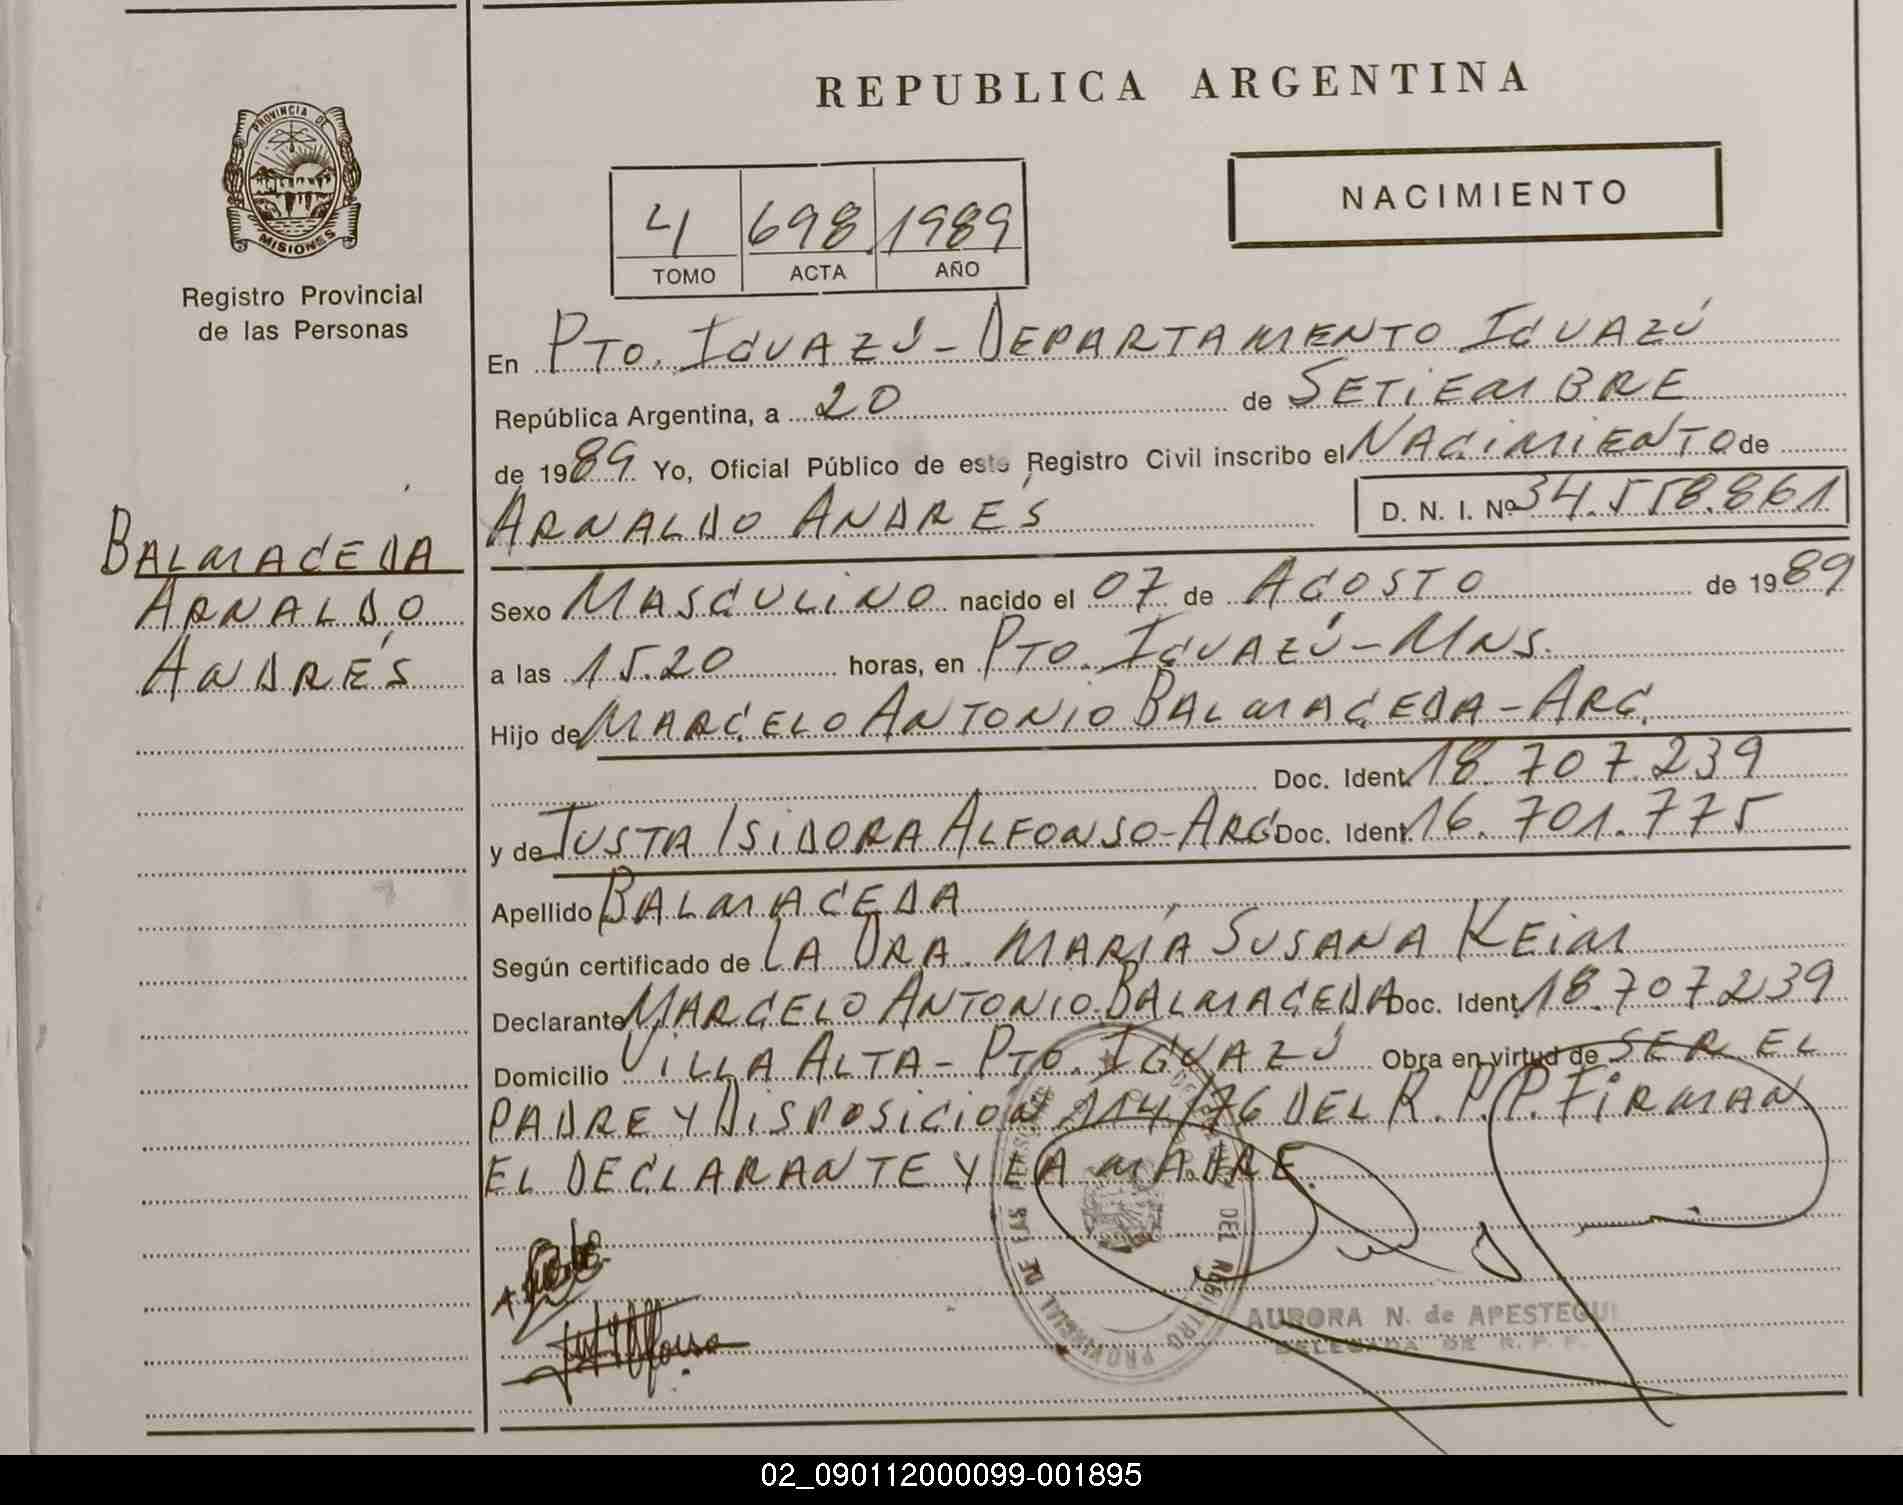 REPUBLICA ARGENTINA
PROVINCIA DE
MISIONES
Registro Provincial
de las Personas
4 698 1989
TOMO ACTA AÑO
NACIMIENTO
BALMACEDA
ARNALDO
ANDRÉS
En PTO. IGUAZÚ - DEPARTAMENTO IGUAZÚ
República Argentina, a 20 de SETIEMBRE
de 1989 Yo, Oficial Público de este Registro Civil inscribo el NACIMIENTO de
ARNALDO ANDRÉS D. N. I. Nº 34.558.861
Sexo MASCULINO nacido el 07 de AGOSTO de 1989
a las 15.20 horas, en PTO. IGUAZÚ - MNS.
Hijo de MARCELO ANTONIO BALMACEDA - ARG.
Doc. Ident. 18.707.239
y de JUSTA ISIDORA ALFONSO - ARG Doc. Ident. 16.701.775
Apellido BALMACEDA
Según certificado de LA DRA. MARÍA SUSANA KEIM
Declarante MARCELO ANTONIO BALMACEDA Doc. Ident. 18.707239
Domicilio VILLA ALTA - PTO. IGUAZÚ Obra en virtud de SER EL
PADRE Y DISPOSICION 114/76 DEL R.P.P. FIRMAN
EL DECLARANTE Y LA MADRE.
AURORA N. de APESTEGUI
DELEGADA DE R. P. P.
02_090112000099-001895